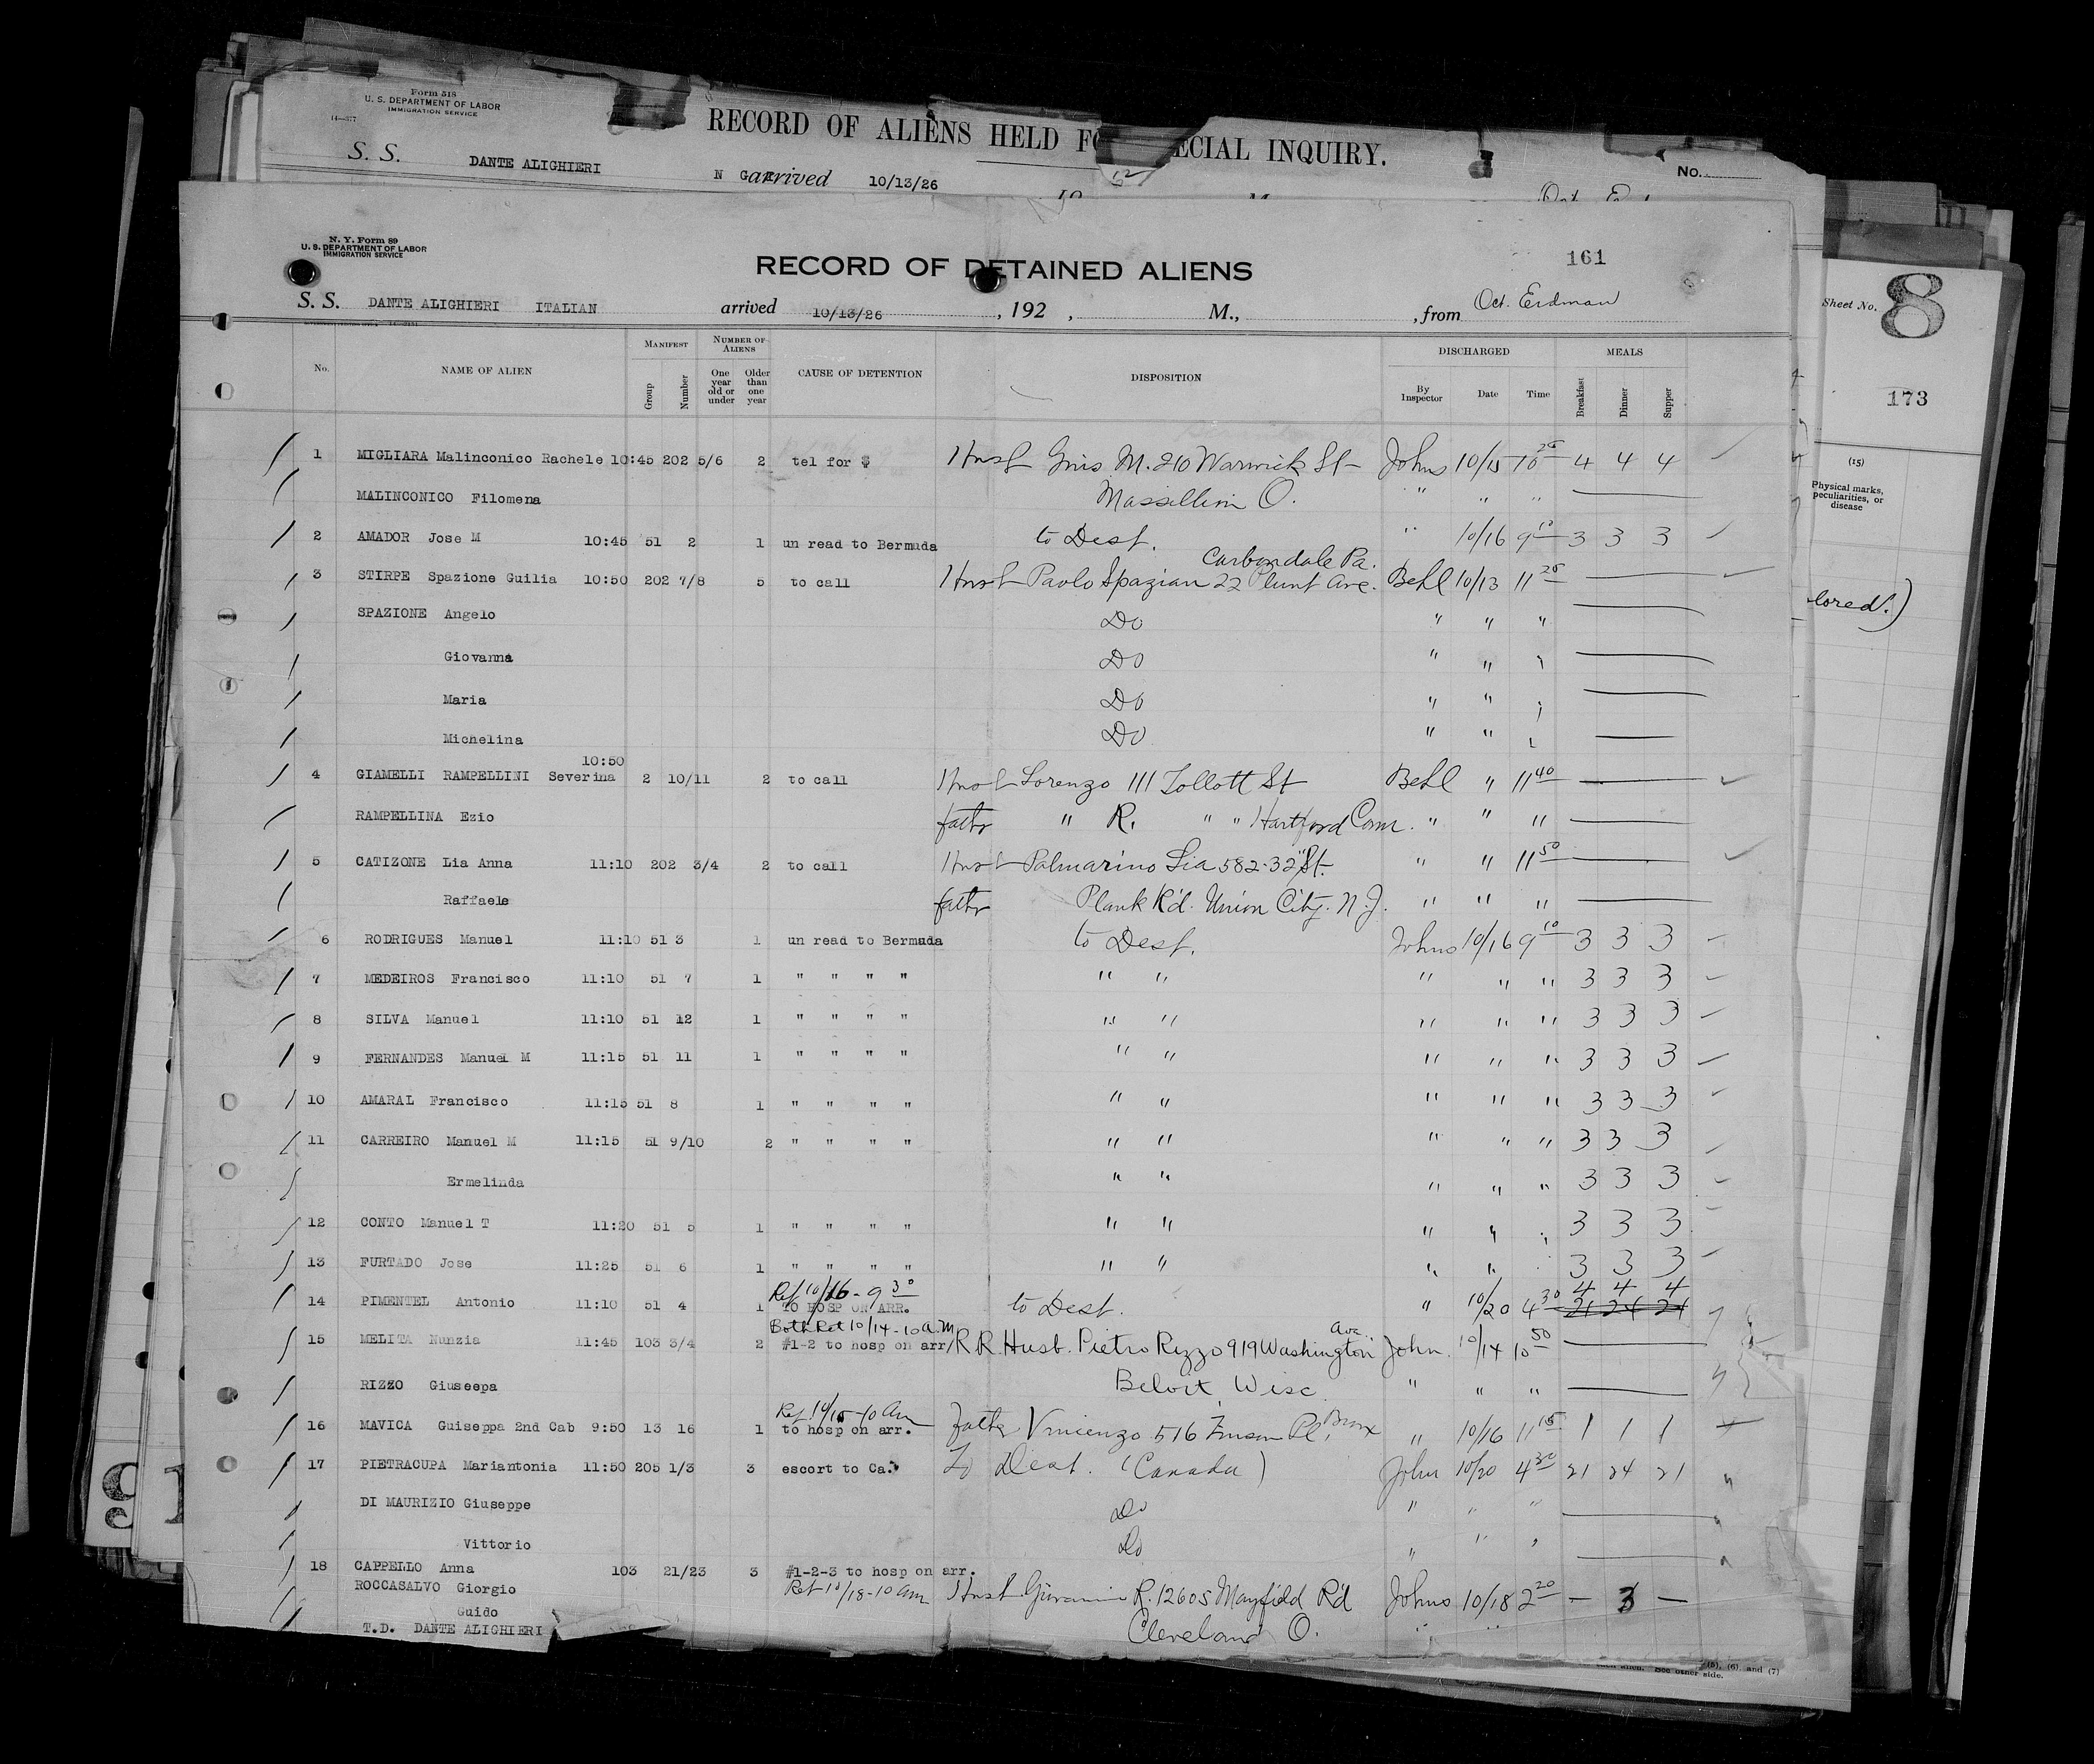 Form 518
U. S. DEPARTMENT OF LABOR
IMMIGRATION SERVICE
14—377
RECORD OF ALIENS HELD FO ECIAL INQUIRY.
S. S. DANTE ALIGHIERI N G arrived 10/13/26 No.
N. Y. Form 89
U. S. DEPARTMENT OF LABOR
IMMIGRATION SERVICE
RECORD OF DETAINED ALIENS
161
S. S. DANTE ALIGHIERI ITALIAN arrived 10/13/26, 192 , M., , from Oct. Erdman
No. NAME OF ALIEN MANIFEST Group Number NUMBER OF ALIENS One year old or under Older than one year CAUSE OF DETENTION DISPOSITION DISCHARGED By Inspector Date Time MEALS Breakfast Dinner Supper
1 MIGLIARA Malinconico Rachele 10:45 202 5/6 2 tel for $ Husb M. 210 Warwick St Johns 10/15 10 4 4 4
MALINCONICO Filomena Massillion O. " " "
2 AMADOR Jose M 10:45 51 2 1 un read to Bermuda to Dest. " 10/16 9 10 3 3 3
Carbondale Pa.
3 STIRPE Spazione Guilia 10:50 202 7/8 5 to call Husb Paolo Spazian 22 Ave. Behl 10/13 11 25
SPAZIONE Angelo Do " " "
Giovanna Do " " "
Maria Do " " "
Michelina Do " " "
10:50
4 GIAMELLI RAMPELLINI Severina 2 10/11 2 to call Husb Lorenzo 111 St Behl " 11 40
RAMPELLINA Ezio fathr " R. " " Hartford Conn. " " "
5 CATIZONE Lia Anna 11:10 202 3/4 2 to call Husb Palmarino Lia 582-32 St. " " 11 50
Raffaele fathr Plank Rd. Union City. N.J. " " "
6 RODRIGUES Manuel 11:10 51 3 1 un read to Bermuda to Dest. Johns 10/16 9 10 3 3 3
7 MEDEIROS Francisco 11:10 51 7 1 " " " " " " " " " 3 3 3
8 SILVA Manuel 11:10 51 12 1 " " " " " " " " " 3 3 3
9 FERNANDES Manuel M 11:15 51 11 1 " " " " " " " " " 3 3 3
10 AMARAL Francisco 11:15 51 8 1 " " " " " " " " " 3 3 3
11 CARREIRO Manuel M 11:15 51 9/10 2 " " " " " " " " " 3 3 3
Ermelinda " " " " " 3 3 3
12 CONTO Manuel T 11:20 51 5 1 " " " " " " " " " 3 3 3
13 FURTADO Jose 11:25 51 6 1 " " " " " " " " 3 3 3
Ret 10/16 - 9 30 4 4 4
14 PIMENTEL Antonio 11:10 51 4 1 TO HOSP ON ARR. to Dest. " 10/20 4 30 21 24 21
Both Ret 10/14 - 10 a.m Ave.
15 MELITA Nunzia 11:45 103 3/4 2 #1-2 to hosp on arr/ RR Husb. Pietro Rizzo 919 Washington John. 10/14 10 50
RIZZO Giuseepa Beloit Wisc. " " "
Ret 10/15-10 am Bronx
16 MAVICA Guiseppa 2nd Cab 9:50 13 16 1 to hosp on arr. Fathr Vincenzo 516 Pl. " 10/16 11 15 1 1 1
17 PIETRACUPA Mariantonia 11:50 205 1/3 3 escort to Ca. To Dest. (Canada) John 10/20 4 30 21 24 21
DI MAURIZIO Giuseppe Do " " "
Vittorio Do " " "
18 CAPPELLO Anna 103 21/23 3 #1-2-3 to hosp on arr.
ROCCASALVO Giorgio Ret 10/18-10 am Husb Giovanni R. 12605 Mayfield Rd Johns 10/18 2 20 — 3 —
Guido Cleveland O. " "
T.D. DANTE ALIGHIERI
Sheet No. 8
173
(15)
Physical marks, peculiarities, or disease
lored.)
(5), (6), and (7)
See other side.